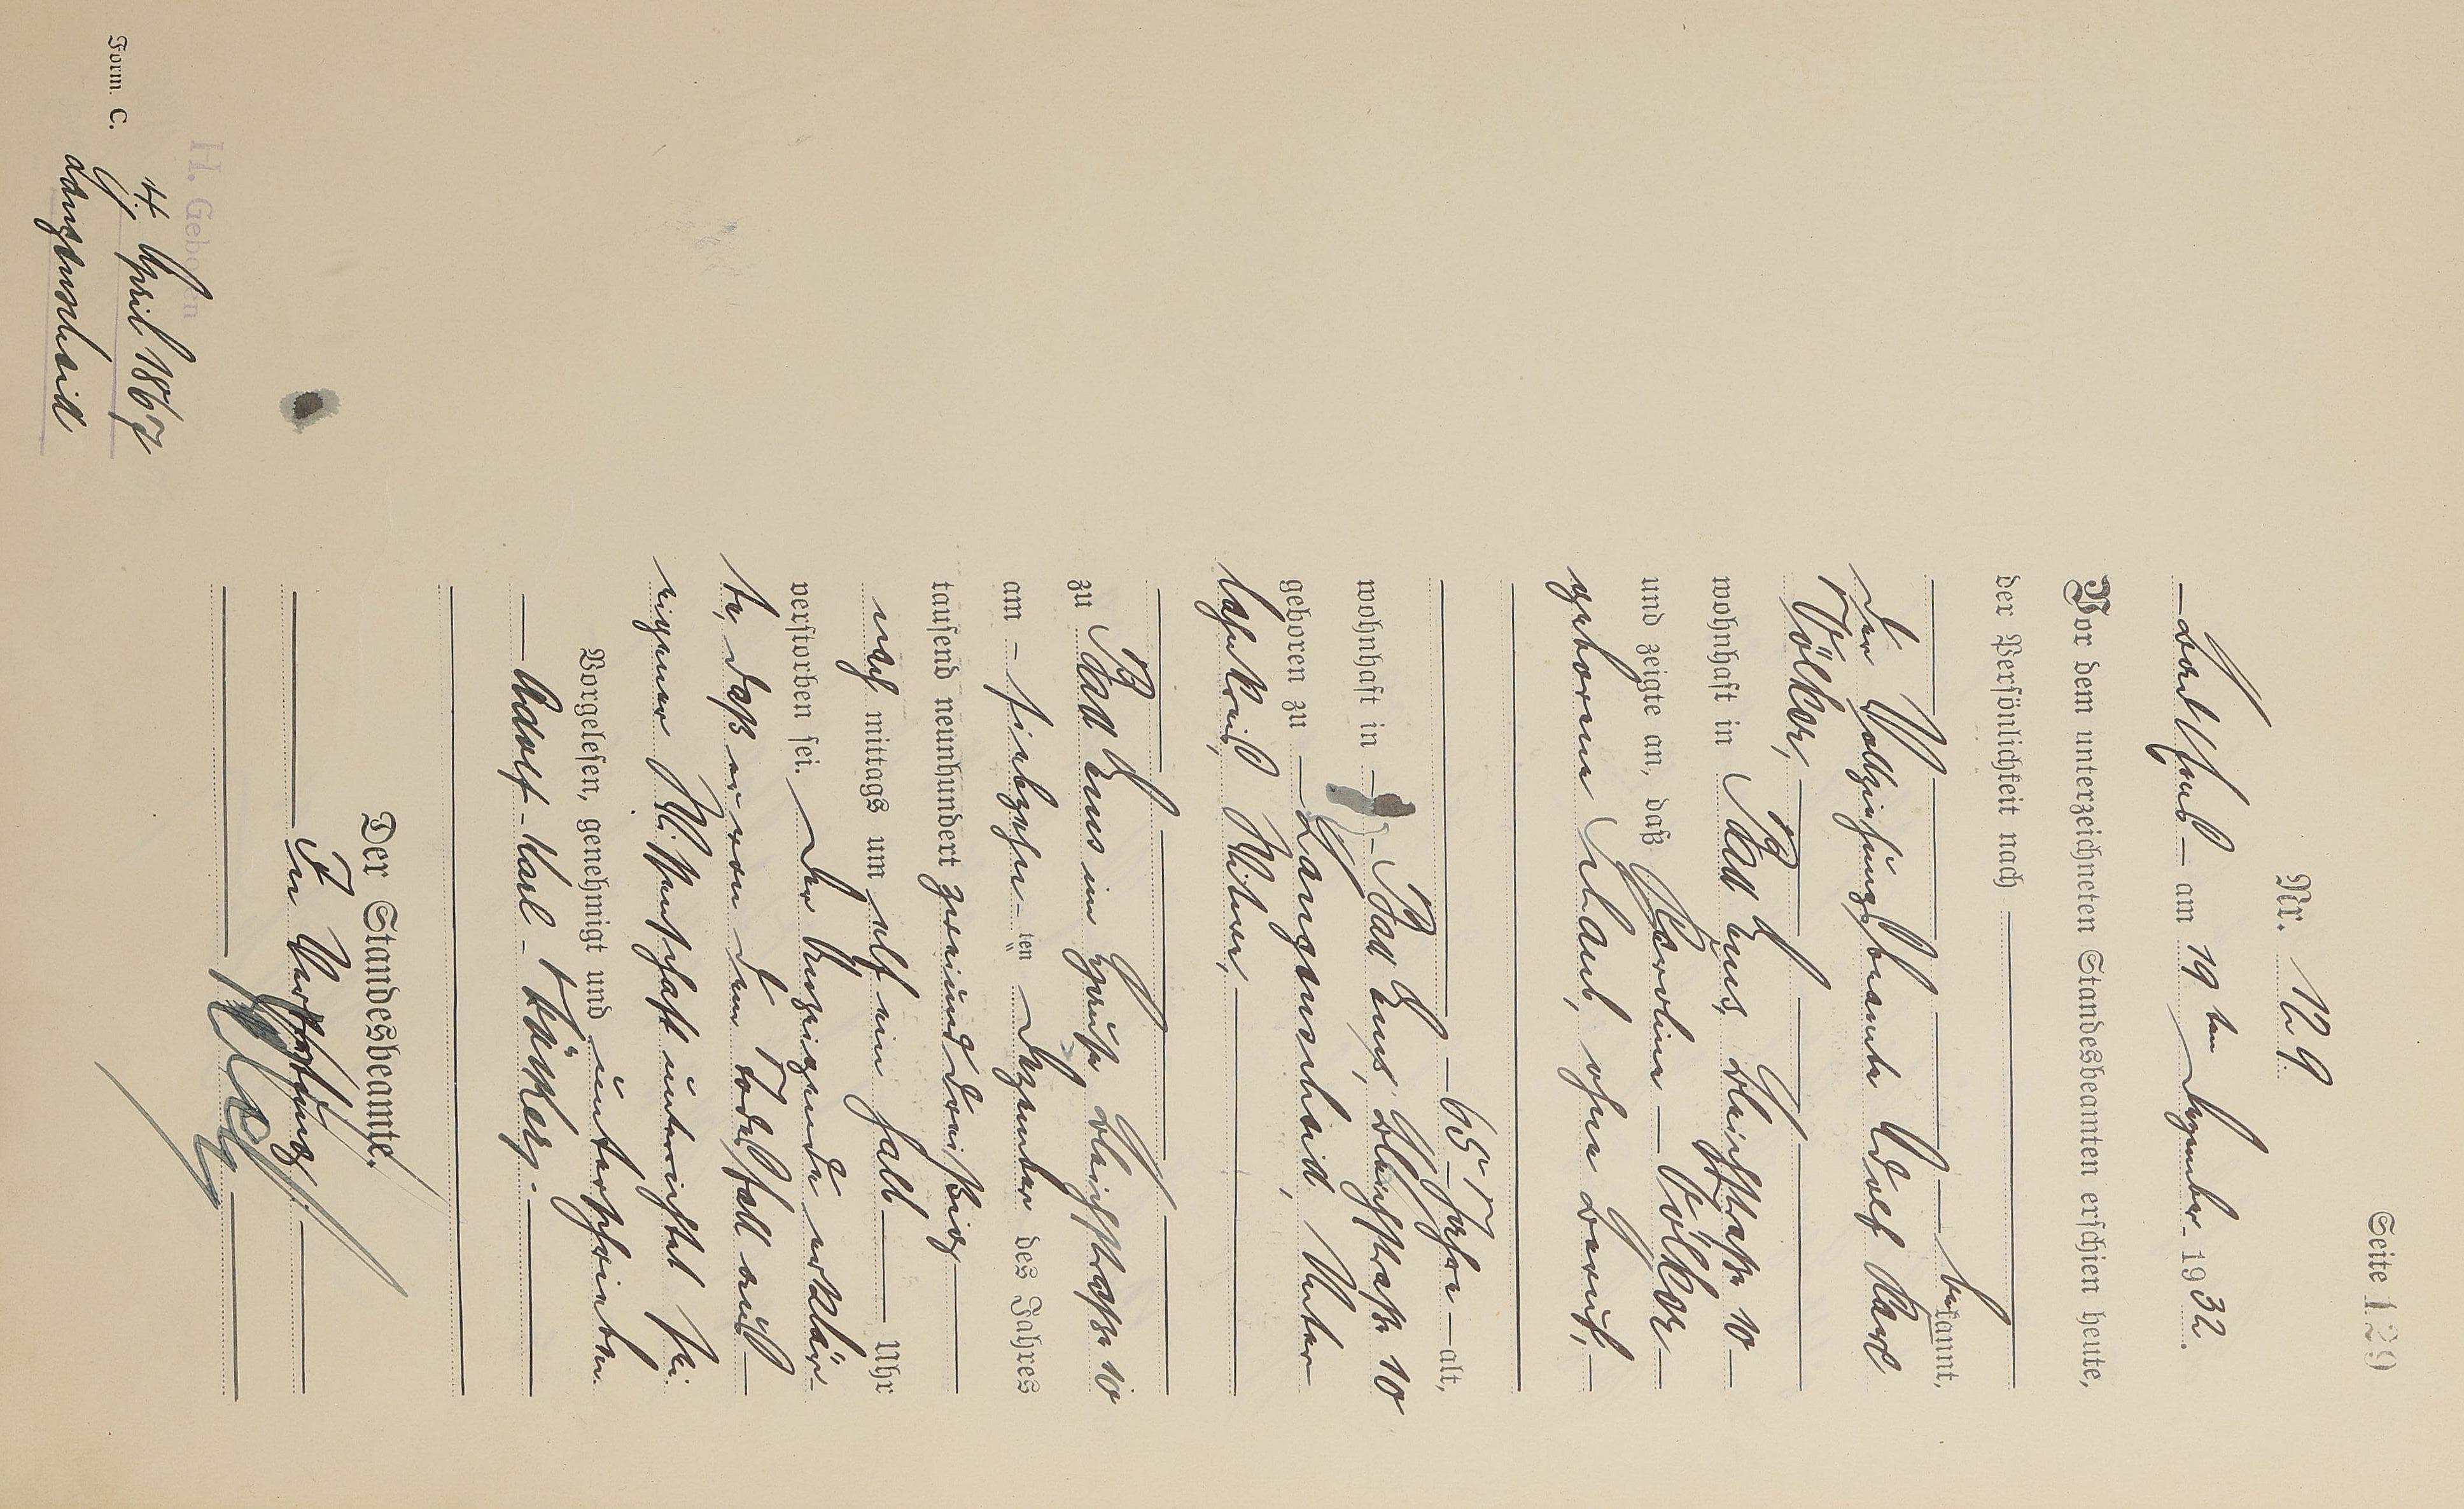 Seite 129
Nr. 129
Bad Ems am 19ten Dezember 1932.
Vor dem unterzeichneten Standesbeamten erschien heute,
der Persönlichkeit nach
bekannt,
der Vollziehungsbeamte Adolf Karl
Völker,
wohnhaft in Bad Ems, Bleichstraße 10
und zeigte an, daß Karoline Völker
geborene Schaub, ohne Beruf,
65 Jahre alt,
wohnhaft in Bad Ems, Bleichstraße 10
geboren zu Langenscheid, Unter-
lahnkreis, Witwe,
zu Bad Ems im Hause Bleichstraße 10
am siebzehnten Dezember des Jahres
tausend neunhundert zweiunddreißig
nach mittags um elf ein halb Uhr
verstorben sei. Der Anzeigende erklär-
te, daß er von dem Todesfall aus
eigener Wissenschaft unterrichtet sei.
Vorgelesen, genehmigt und unterschrieben
Adolf-Karl-Völker.
Der Standesbeamte.
In Vertretung.
Form. C.
H. Geboren
4. April 1867
Langenscheid